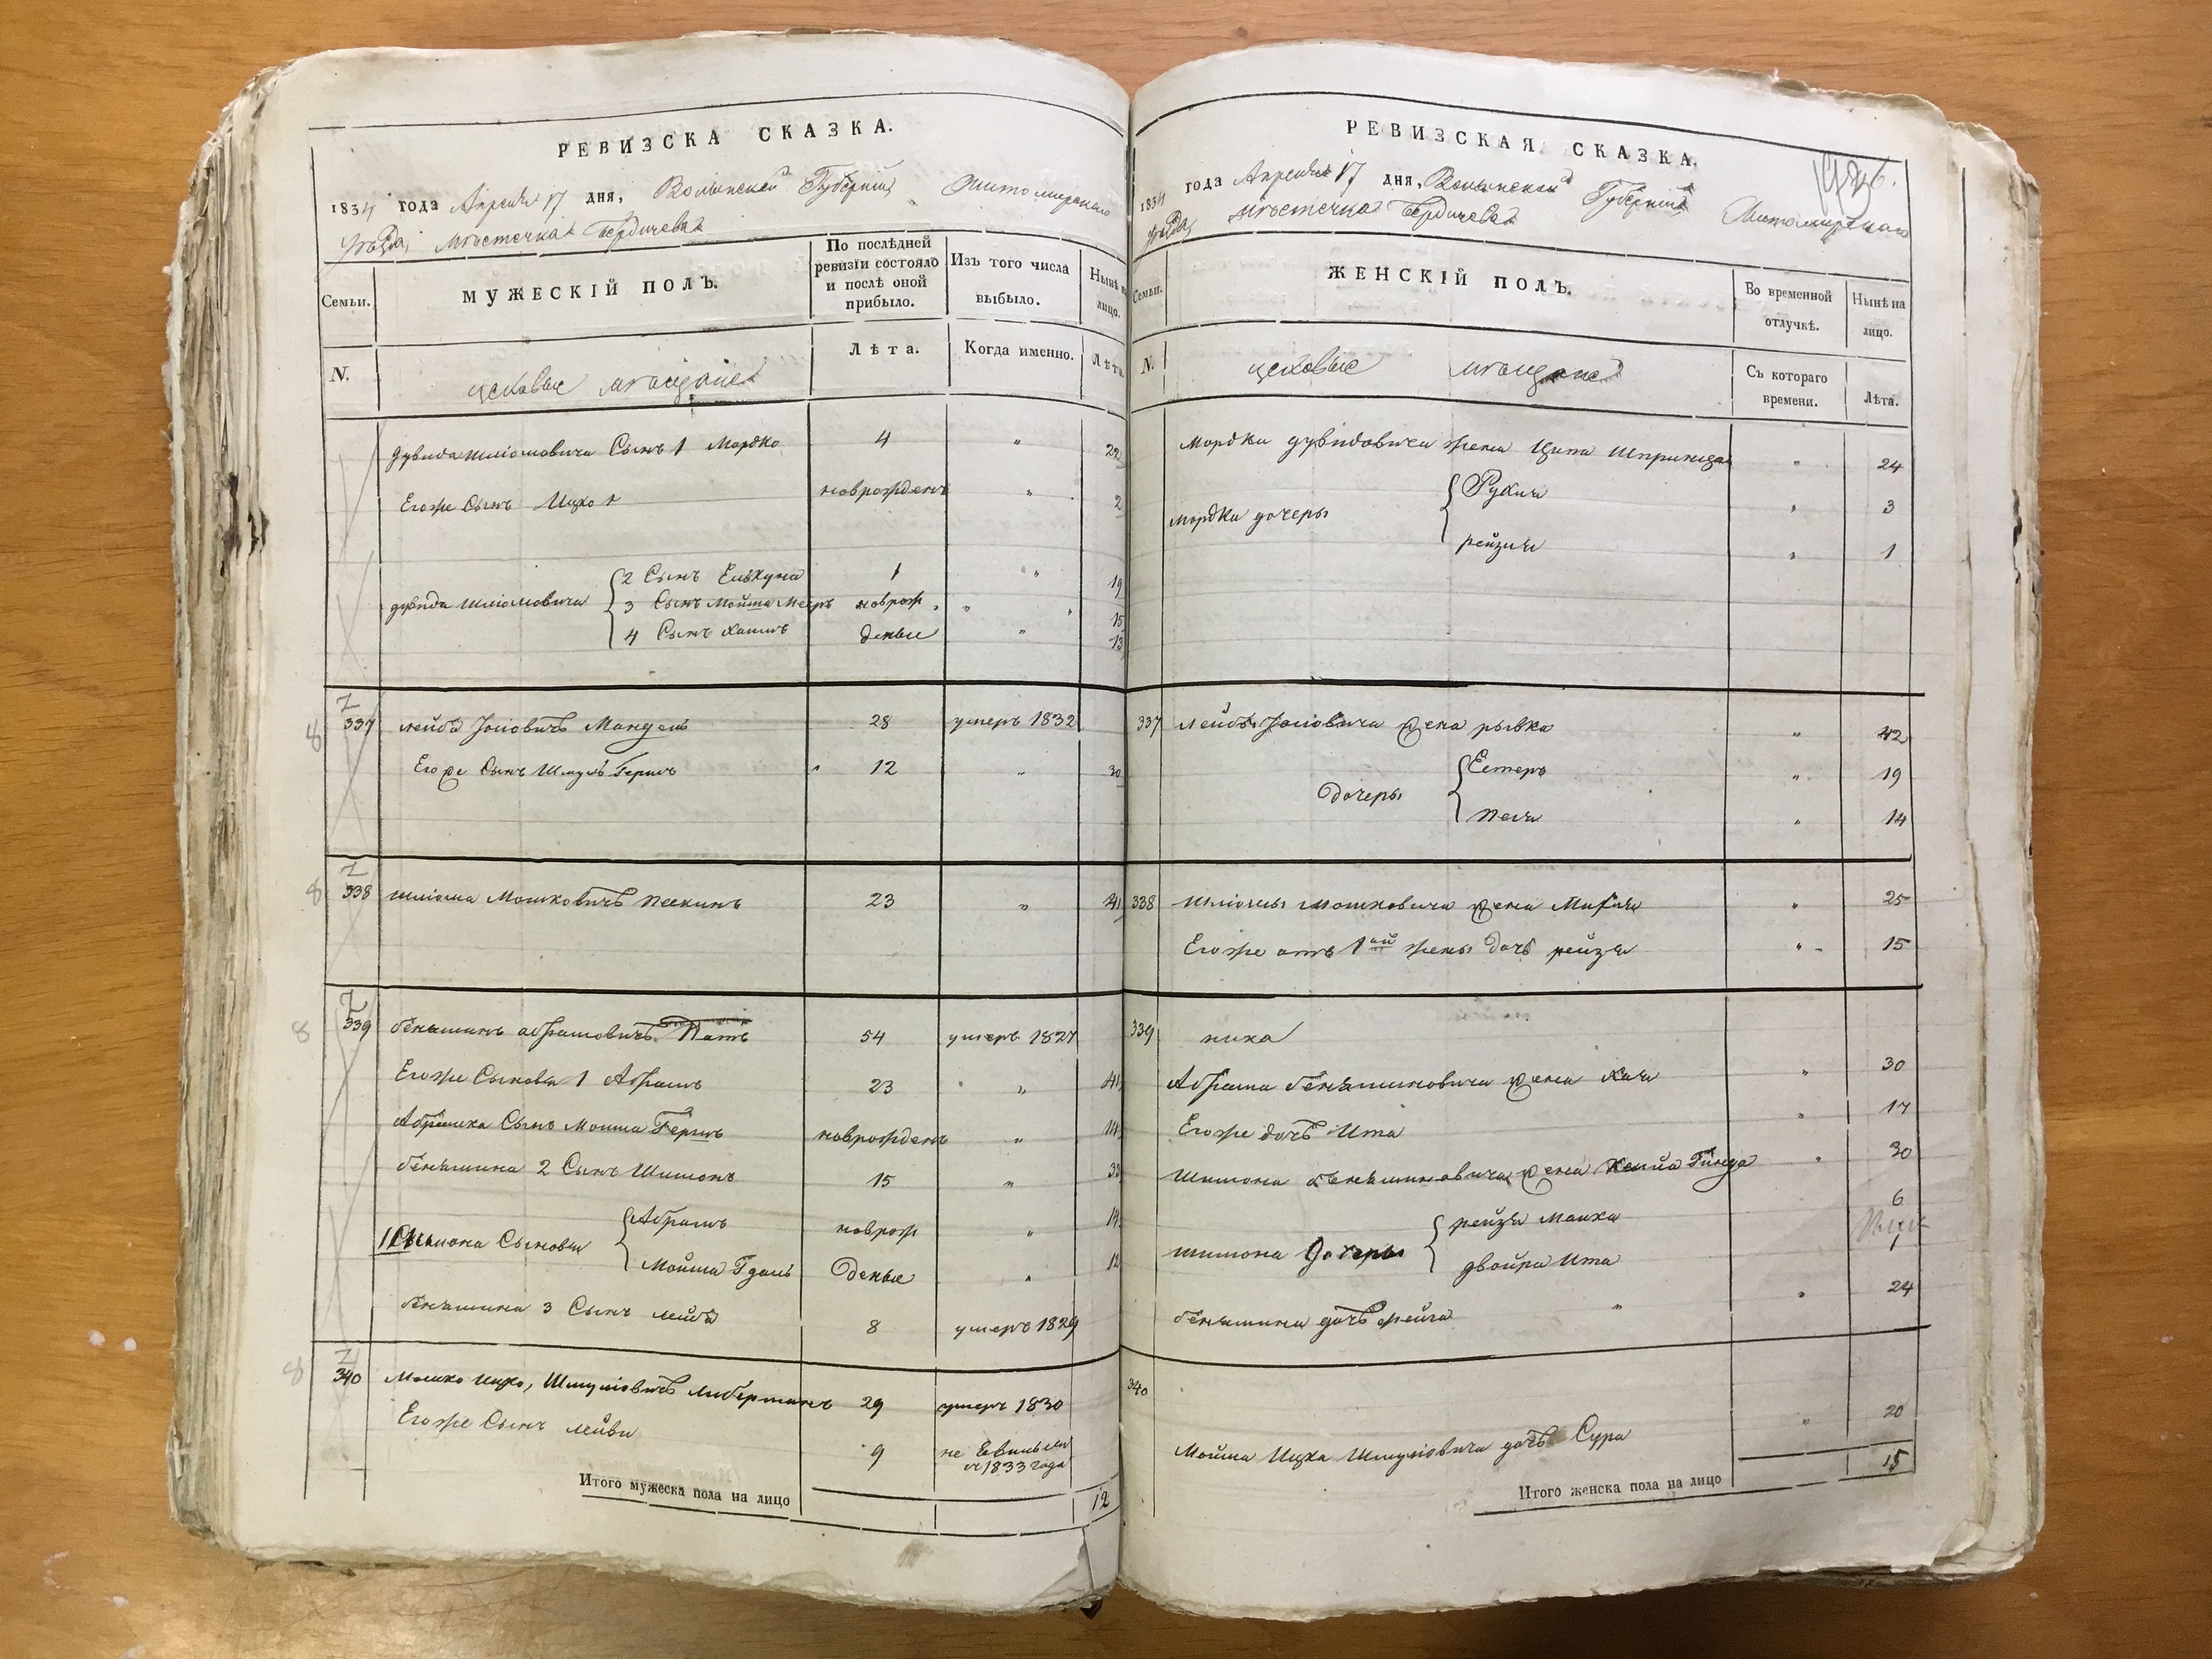 РЕВИЗСКА СКАЗКА.
1834 года Апреля 17 дня, Волынской Губерніи Житомирскаго
уѣзда, мѣстечка Бердичева
Семьи. МУЖЕСКІЙ ПОЛЪ. По послѣдней ревизіи состояло и послѣ оной прибыло. Изъ того числа выбыло. Нынѣ на лицо.
N. цеховые мѣщане Лѣта. Когда именно. Лѣта.
дувида шліомовича Сынъ 1 Мордко 4 " 22
Егоже Сынъ Ицко новорожденъ " 2
2 Сынъ Елькуна 1 " 19
дувида шліомовича 3 Сынъ Мойша Мееръ новрож " 15
4 Сынъ Хаимъ деные " 13
8 337 лейба Іоліовичъ Мандель 28 умеръ 1832
Егоже Сынъ Шмуль Гершъ 12 " 30
8 338 шліома Мошковичъ 23 " 41
8 339 бенямин абрамовичъ 54 умеръ 1827
Егоже Сыновья 1 Абрамъ 23 " 41
Абрамка Сынъ Мошка Гершъ новрожденъ " 14
бенямина 2 Сынъ Шимонъ 15 " 33
Абрамъ новрож " 14
Шимона Сыновья
Мойша Гдаль Деные " 12
бенямина 3 Сынъ лейба 8 умеръ 1829
8 340 Мошко Ицко, Шмуліовичъ Либерманъ 29 умеръ 1830
Егоже Сынъ лейви 9 не
1833 года
Итого мужеска пола на лицо 12
РЕВИЗСКАЯ СКАЗКА.
1834 года Апреля 17 дня, Волынской Губерніи Житомирскаго
уѣзда мѣстечка Бердичева
Семьи. ЖЕНСКІЙ ПОЛЪ. Во временной отлучкѣ. Нынѣ на лицо.
N. цеховые мѣщане Съ котораго времени. Лѣта.
Мордки дувидовича жена Ципа Шпринца " 24
Рухля " 3
мордки дочеры
рейзя " 1
337 лейбы Іоліовича жена рывка " 42
Естеръ " 19
дочеры
Песя " 14
338 шліомы мошковича жена " 25
Егоже отъ 1ой жены дочь рейзя " 15
339
Абрама бенямииновича жена Хая " 30
Егоже дочь Ита " 17
Шимона бенямииновича жена Гинда " 30
рейзя Малка 6
шимона дочеры
двойра Ита 1
бенямина дочь фейга " 24
340
Мойша Ицка Шмуліовича дочь Сура " 20
Итого женска пола на лицо 15